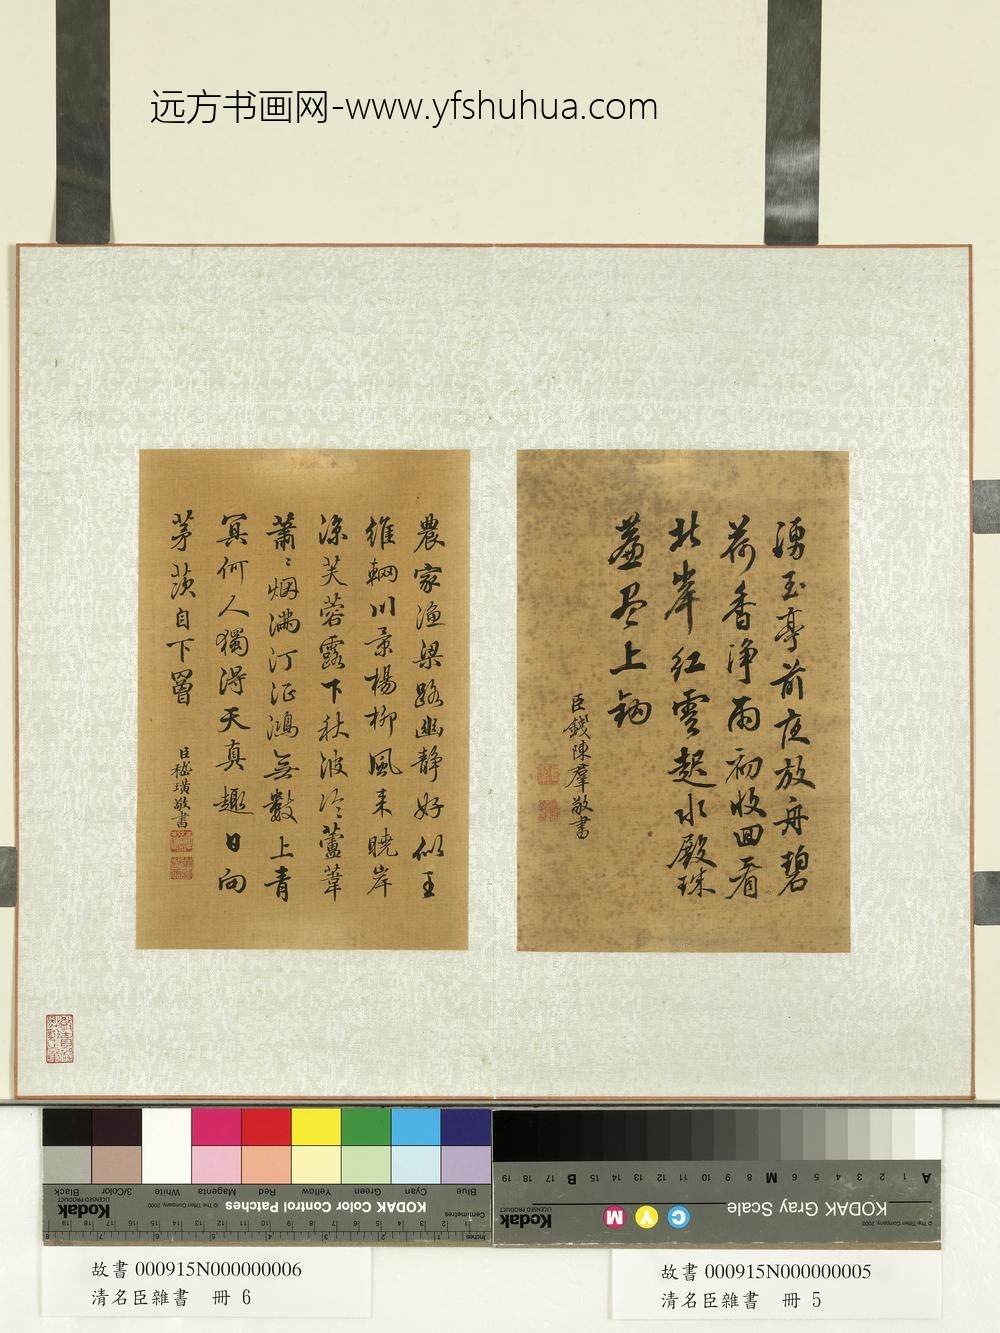 远方书画网-www.yfshuhua.com
湧玉亭前夜放舟碧
荷香淨雨初收回看
北岸紅雲起水殿珠
簾盡上鉤
臣錢陳羣敬書
農家漁梁路幽静好似王
維輞川景楊柳風来曉岸
涼芙蓉露下秋波冷蘆葦
蕭〻烟滿汀征鴻無數上青
冥何人獨得天真趣日向
茅茨自下罾
臣嵇璜敬書
Blue Cyan Green Yellow Red Magenta White 3/Color Black
KODAK Color Control Patches
© The Tiffen Company, 2000
Kodak
LICENSED PRODUCT
Inches
Centimetres
A 1 2 3 4 5 6 M 8 9 10 11 12 13 14 15 B 17 18 19
KODAK Gray Scale
C Y M
Kodak
LICENSED PRODUCT
© The Tiffen Company, 2000
故書 000915N000000006
清名臣雜書 冊 6
故書 000915N000000005
清名臣雜書 冊 5